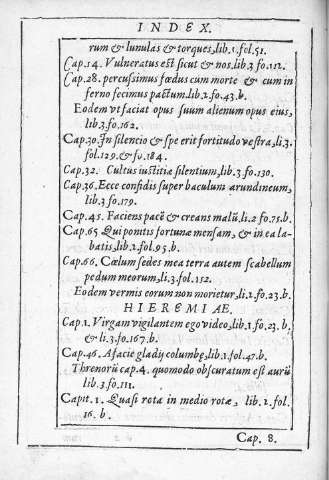 INDEX.
rum & lunulas & torques, lib.1.fol.51.
Cap.14. Vulneratus est sicut & nos.lib.3 fo.112.
Cap.28. percussimus fœdus cum morte & cum in
ferno fecimus pactum.lib.1.fo.43.b.
Eodem vt faciat opus suum alienum opus eius,
lib.3.fo.162.
Cap.30. In silencio & spe erit fortitudo vestra, li.3.
fol.129.& fo.184.
Cap.32. Cultus iustitiæ silentium, lib.3 fo.130.
Cap.36. Ecce confidis super baculum arundineum,
lib.3 fo.179.
Cap.45. Faciens pacē & creans malū.li.2 fo.75.b.
Cap.65 Qui ponitis fortunæ mensam, & in ea la-
batis, lib.1.fol.95.b.
Cap.66. Cœlum sedes mea terra autem scabellum
pedum meorum, li.3.fol.152.
Eodem vermis eorum non morietur, li.1.fo.23.b.
HIEREMIAE.
Cap.1. Virgam vigilantem ego video, lib.1 fo.23.b.
& li.3.fo.167.b.
Cap.46. A facie gladij columbę, lib.1.fol.47.b.
Threnorū cap.4. quomodo obscuratum est aurū
lib.3.fo.111.
Capit.1. Quasi rota in medio rotæ, lib.1.fol.
16.b.
Cap. 8.